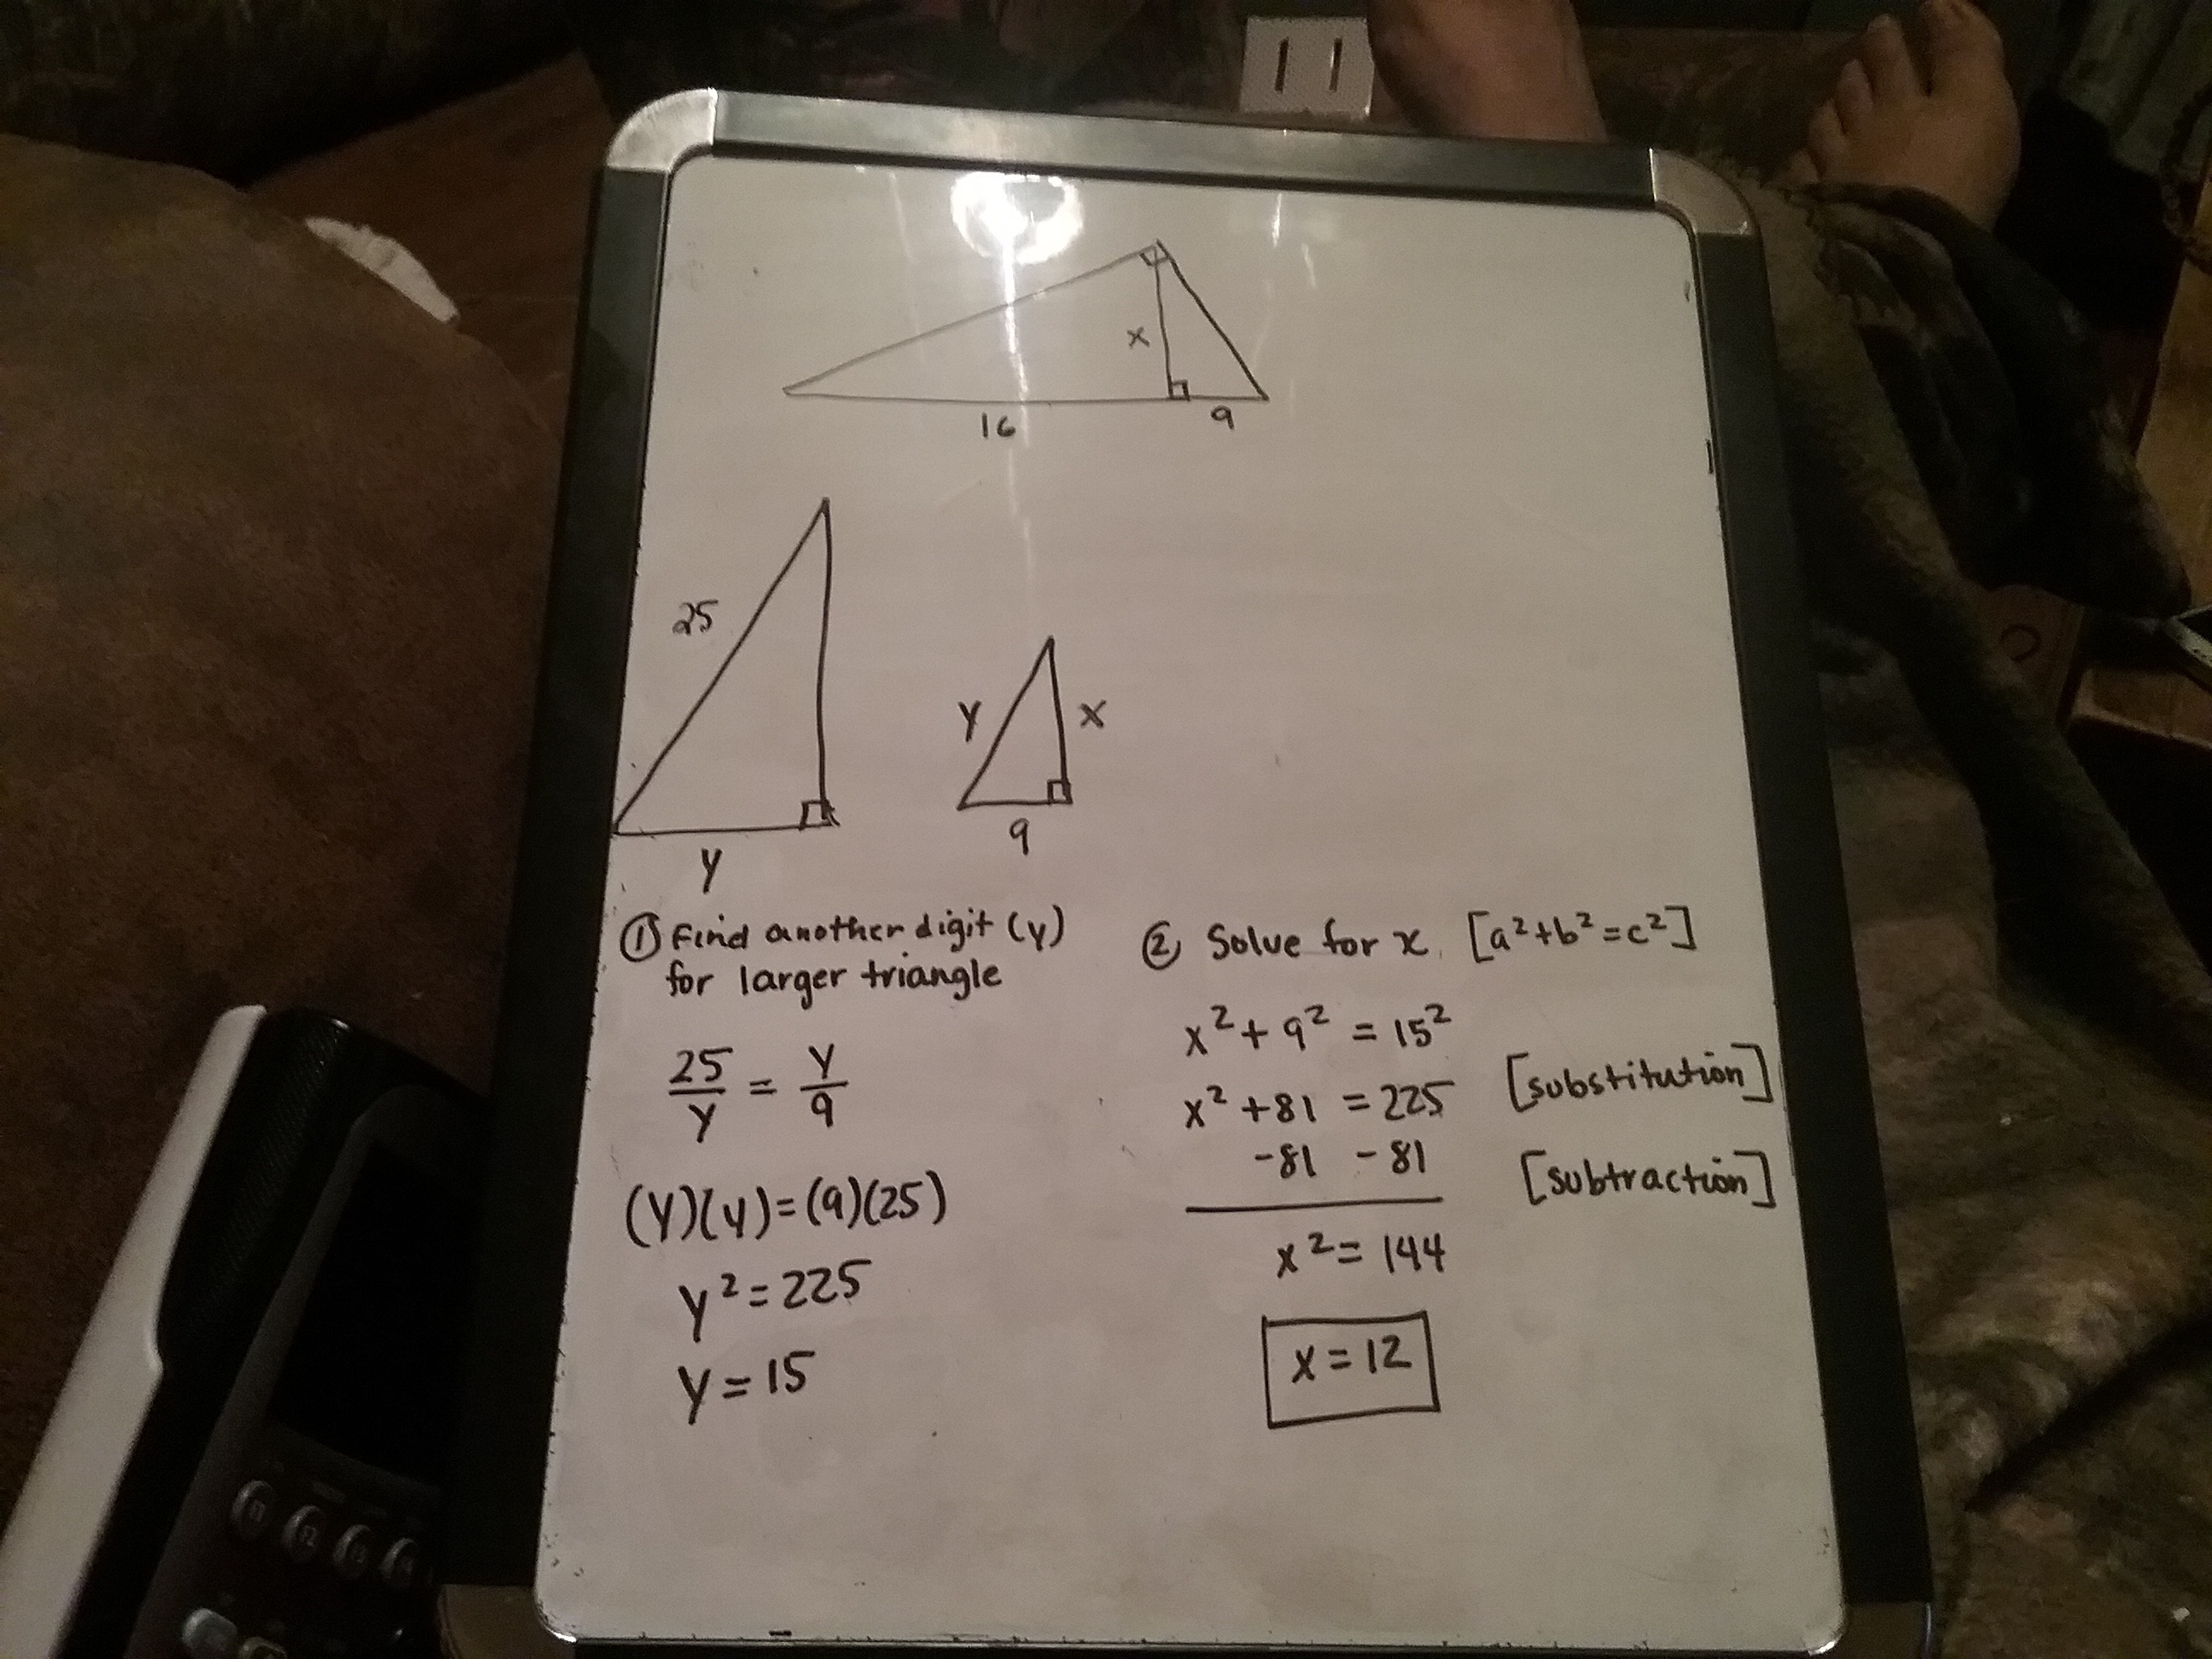 11
x
16
9
25
y
x
y
9
① Find another digit (y)
for larger triangle
25/y = y/9
(y)(y)=(9)(25)
y²=225
y=15
② Solve for x [a²+b²=c²]
x²+9² = 15²
x²+81 = 225 [substitution]
-81 -81 [subtraction]
x²= 144
x=12